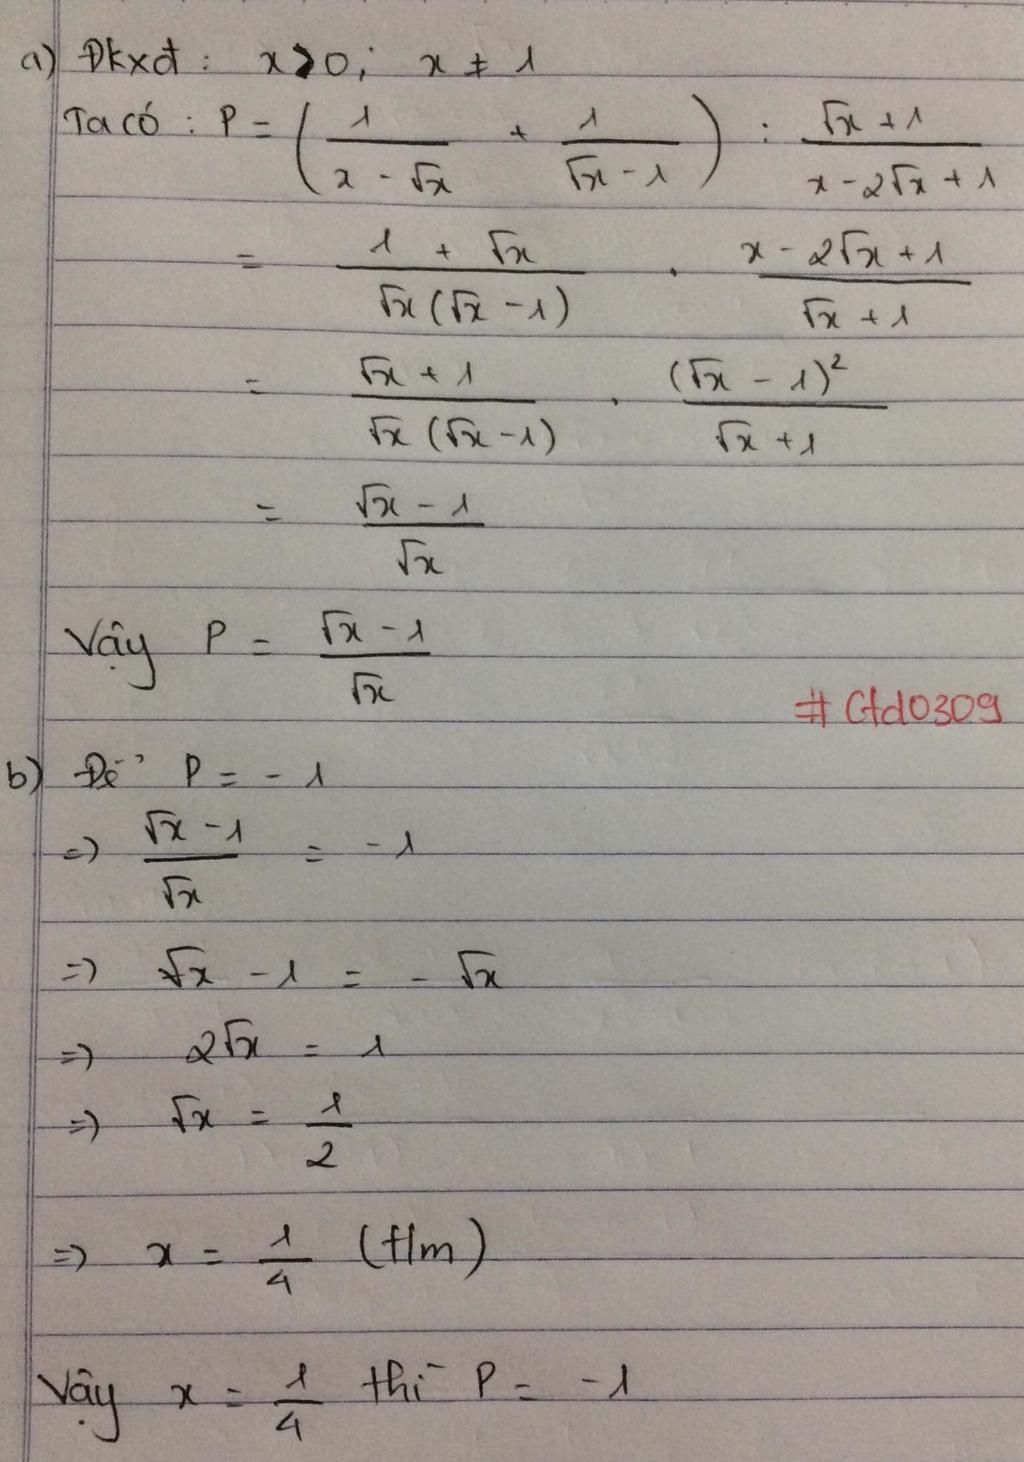 a) Đkxđ : x > 0 ; x ≠ 1
Ta có : P = ( 1/(x - √x) + 1/(√x - 1) ) : (√x + 1)/(x - 2√x + 1)
= (1 + √x)/(√x(√x - 1)) . (x - 2√x + 1)/(√x + 1)
= (√x + 1)/(√x(√x - 1)) . (√x - 1)²/(√x + 1)
= (√x - 1)/√x
Vậy P = (√x - 1)/√x
# Gtd0309
b) Để P = - 1
=> (√x - 1)/√x = - 1
=> √x - 1 = - √x
=> 2√x = 1
=> √x = 1/2
=> x = 1/4 (t/m)
Vậy x = 1/4 thì P = - 1